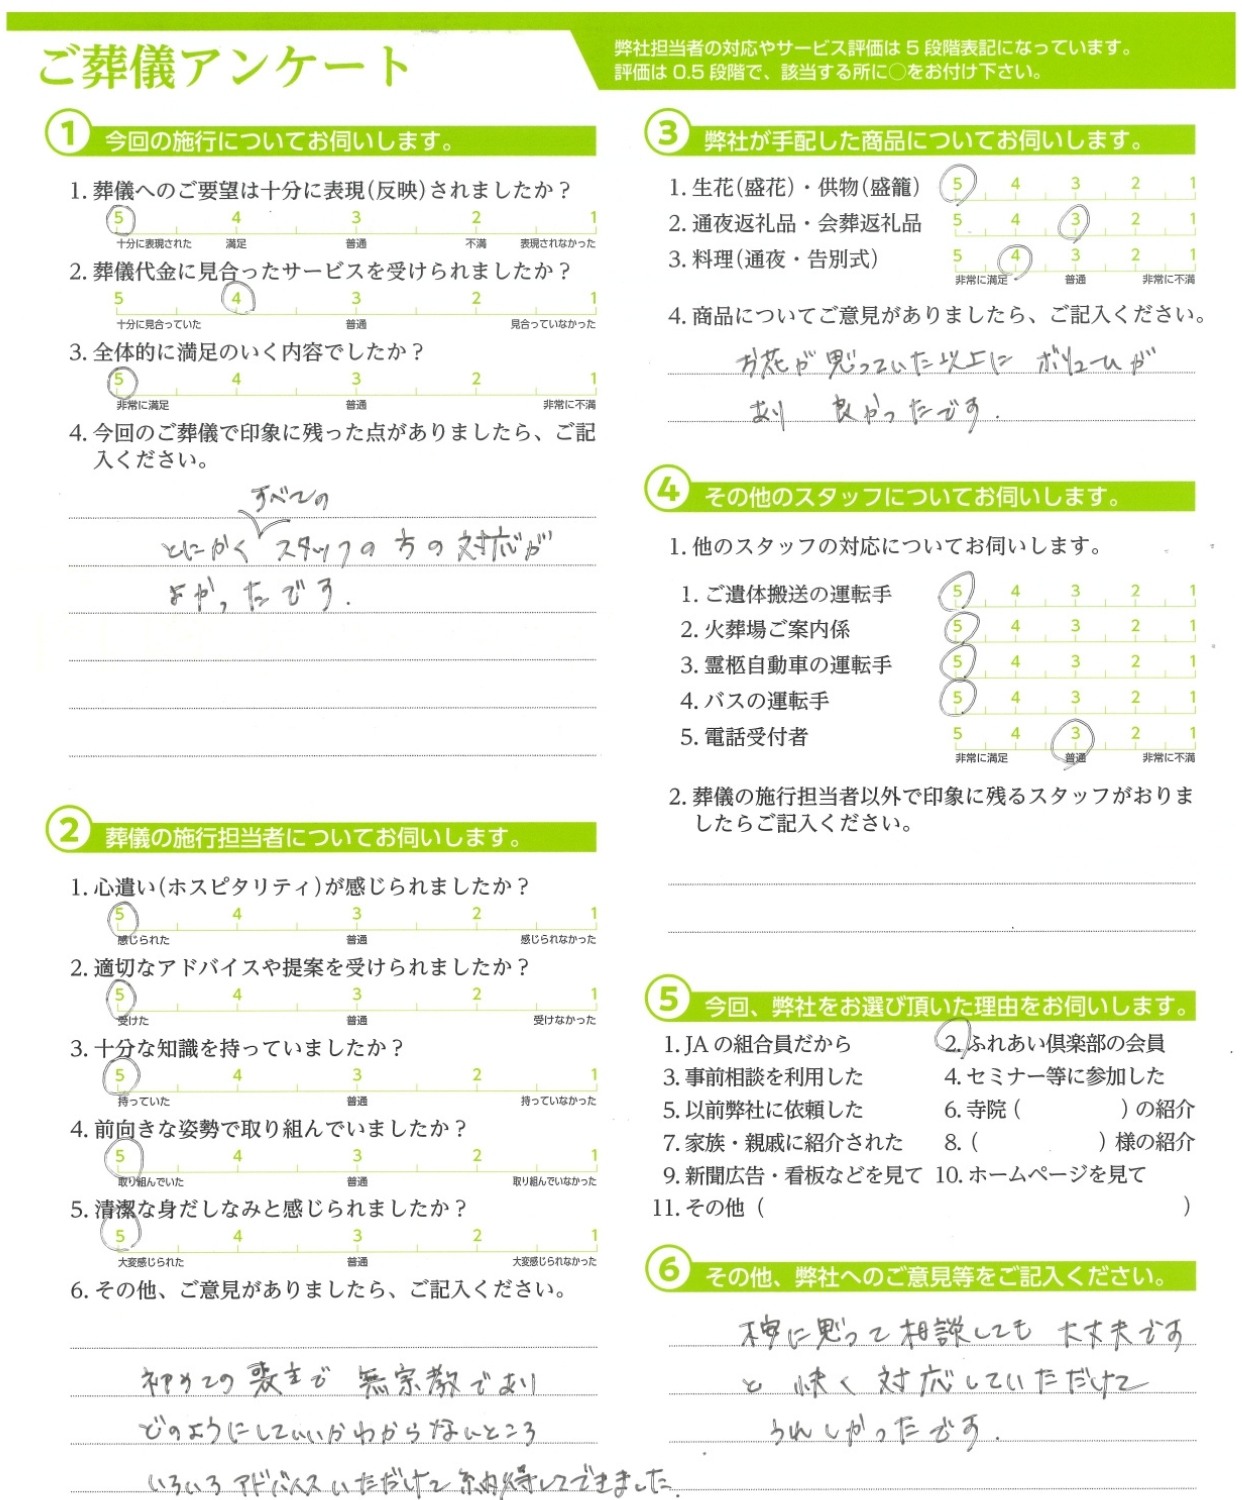 ご葬儀アンケート
弊社担当者の対応やサービス評価は5段階表記になっています。
評価は0.5段階で、該当する所に○をお付け下さい。
① 今回の施行についてお伺いします。
1. 葬儀へのご要望は十分に表現(反映)されましたか？
5 4 3 2 1
十分に表現された 満足 普通 不満 表現されなかった
2. 葬儀代金に見合ったサービスを受けられましたか？
5 4 3 2 1
十分に見合っていた 普通 見合っていなかった
3. 全体的に満足のいく内容でしたか？
5 4 3 2 1
非常に満足 普通 非常に不満
4. 今回のご葬儀で印象に残った点がありましたら、ご記
入ください。
すべての
とにかく スタッフの方の対応が
よかったです.
② 葬儀の施行担当者についてお伺いします。
1. 心遣い(ホスピタリティ)が感じられましたか？
5 4 3 2 1
感じられた 普通 感じられなかった
2. 適切なアドバイスや提案を受けられましたか？
5 4 3 2 1
受けた 普通 受けなかった
3. 十分な知識を持っていましたか？
5 4 3 2 1
持っていた 普通 持っていなかった
4. 前向きな姿勢で取り組んでいましたか？
5 4 3 2 1
取り組んでいた 普通 取り組んでいなかった
5. 清潔な身だしなみと感じられましたか？
5 4 3 2 1
大変感じられた 普通 大変感じられなかった
6. その他、ご意見がありましたら、ご記入ください。
初めての喪主で 無宗教であり
どのようにしていいかわからないところ
いろいろアドバイスいただけて納得してできました.
③ 弊社が手配した商品についてお伺いします。
1. 生花(盛花)・供物(盛籠) 5 4 3 2 1
2. 通夜返礼品・会葬返礼品 5 4 3 2 1
3. 料理(通夜・告別式) 5 4 3 2 1
非常に満足 普通 非常に不満
4. 商品についてご意見がありましたら、ご記入ください。
お花が思っていた以上に ボリュームが
あり 良かったです.
④ その他のスタッフについてお伺いします。
1. 他のスタッフの対応についてお伺いします。
1. ご遺体搬送の運転手 5 4 3 2 1
2. 火葬場ご案内係 5 4 3 2 1
3. 霊柩自動車の運転手 5 4 3 2 1
4. バスの運転手 5 4 3 2 1
5. 電話受付者 5 4 3 2 1
非常に満足 普通 非常に不満
2. 葬儀の施行担当者以外で印象に残るスタッフがおりま
したらご記入ください。
⑤ 今回、弊社をお選び頂いた理由をお伺いします。
1. JAの組合員だから 2. ふれあい倶楽部の会員
3. 事前相談を利用した 4. セミナー等に参加した
5. 以前弊社に依頼した 6. 寺院( )の紹介
7. 家族・親戚に紹介された 8. ( )様の紹介
9. 新聞広告・看板などを見て 10. ホームページを見て
11. その他( )
⑥ その他、弊社へのご意見等をご記入ください。
不安に思って相談しても 大丈夫です
と 快く対応していただけて
うれしかったです.